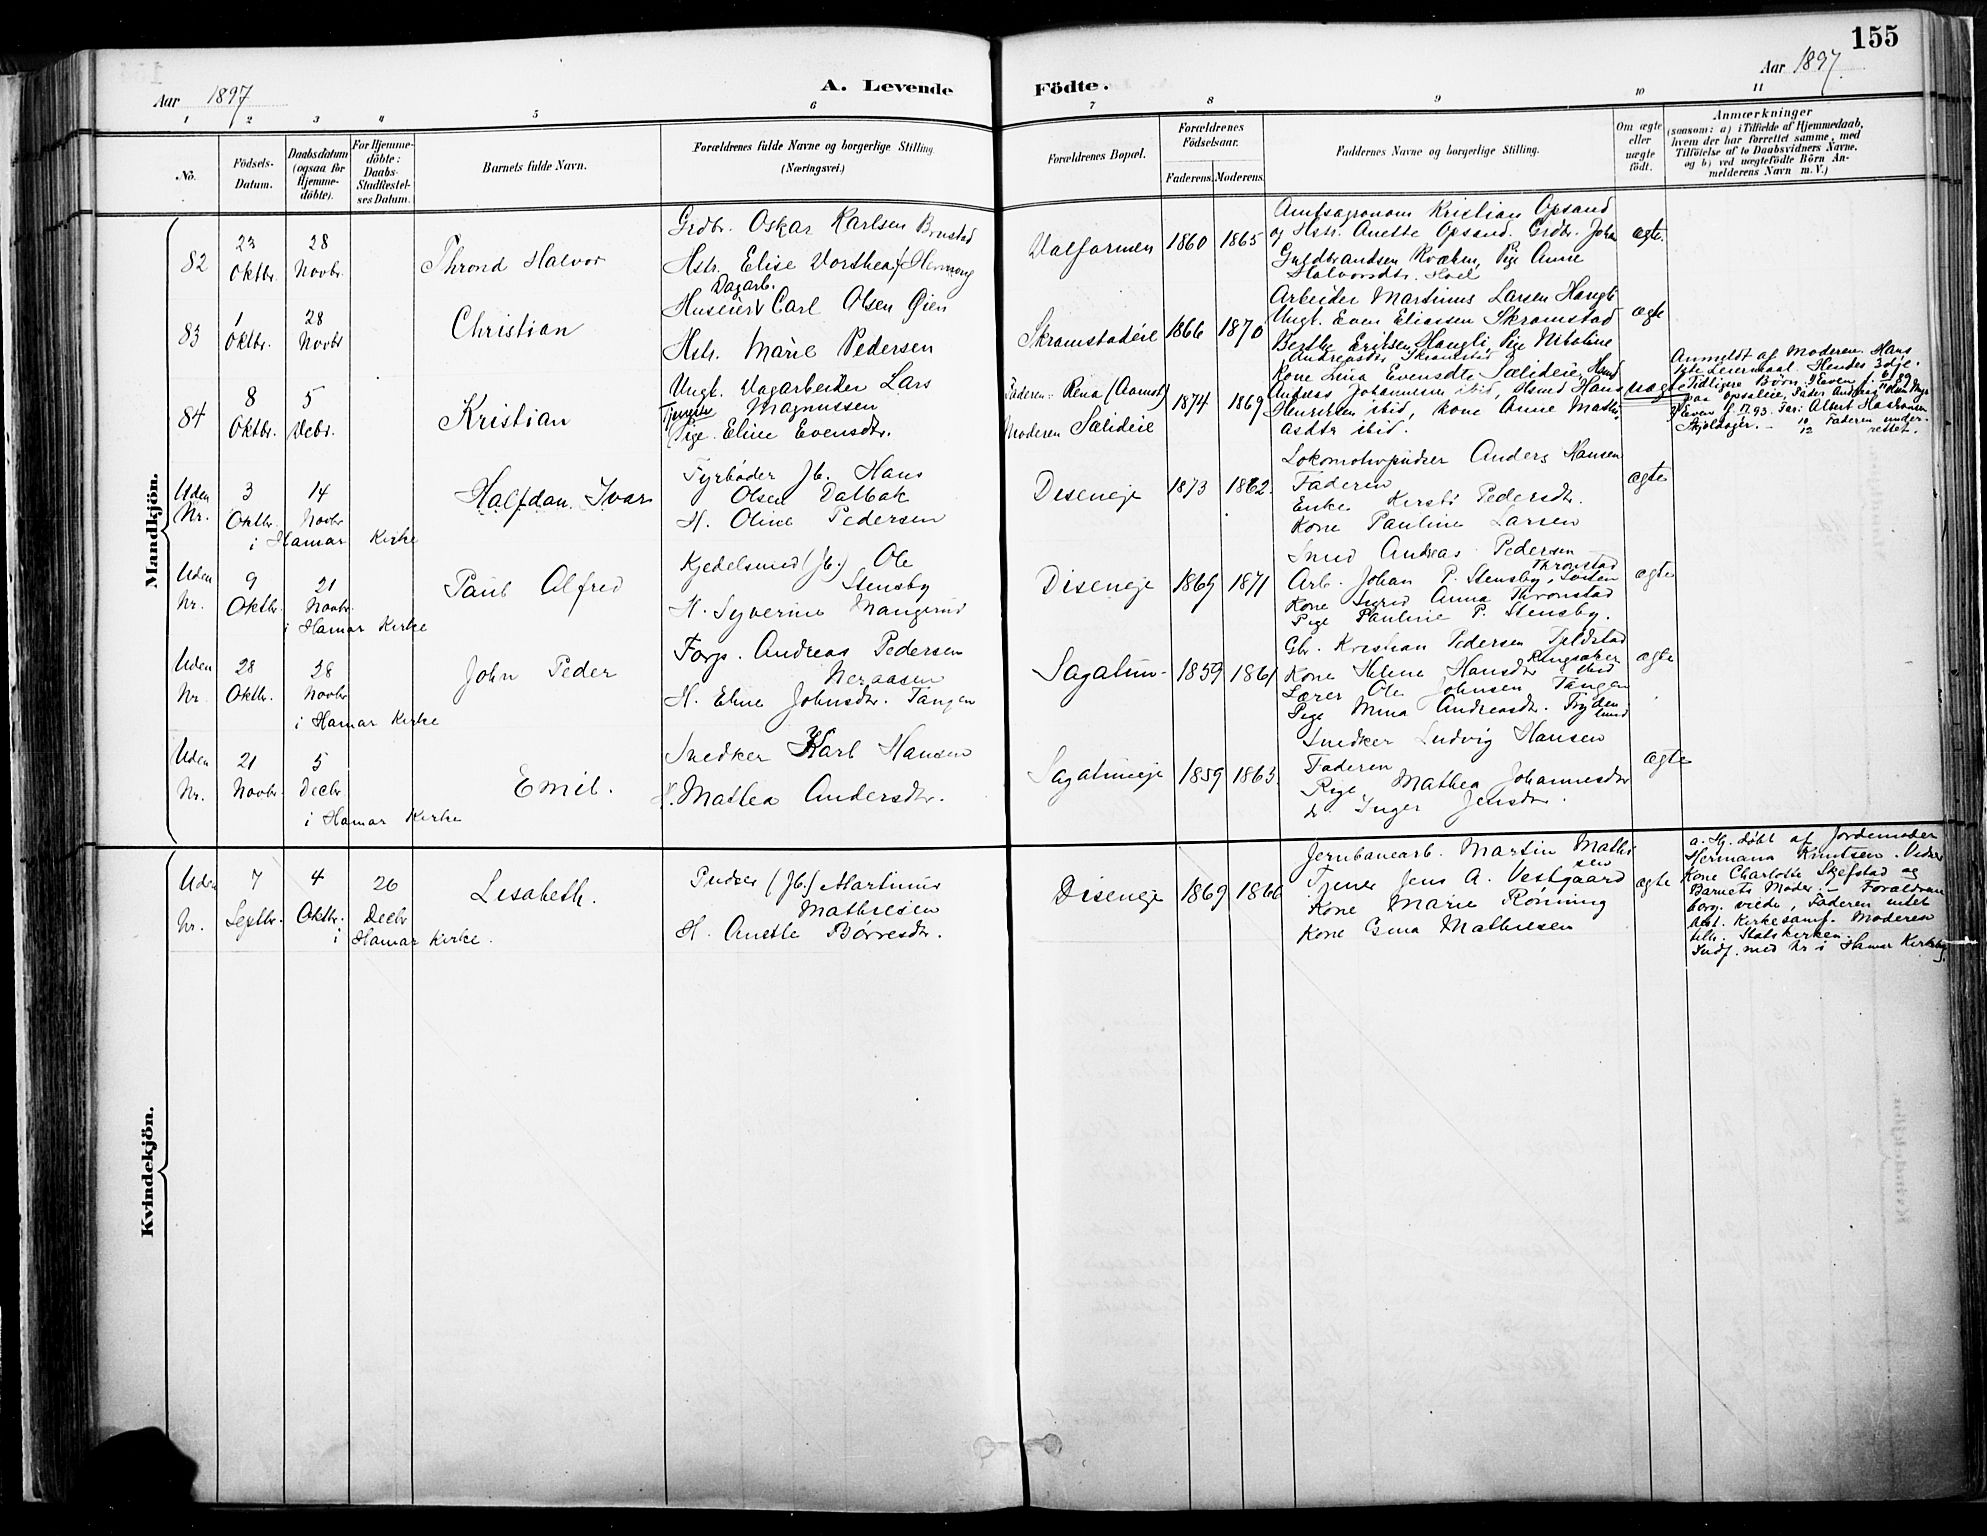 155
Aar 1897
A. Levende Födte.
Aar 1897.
1 2 3 4 5 6 7 8 9 10 11
No.
Födsels-Datum.
Daabsdatum (ogsaa for Hjemme-döbte).
For Hjemme-döbte: Daabs-Stadfæstel-ses Datum.
Barnets fulde Navn.
Forældrenes fulde Navne og borgerlige Stilling. (Næringsvei.)
Forældrenes Bopæl.
Forældrenes Födselsaar.
Faderens. Moderens.
Faddernes Navne og borgerlige Stilling.
Om ægte eller uægte födt.
Anmærkninger
(saasom: a) i Tilfælde af Hjemmedaab, hvem der har forrettet samme, med Tilföielse af to Daabsvidners Navne, og b) ved uægtefödte Börn An-melderens Navn m. V.)
Mandkjön.
82
23 Oktbr.
28 Novbr.
Thrond Halvor
Grdbr. Oskar Karlsen Brustad
Hstr. Elise Dorthea
Valfarmen
1860 1865
Amtsagronom Kristian Opsand
og Hstr. Anette Opsand. Grdbr. Johan
Guldbrandsen Kvæken, Pige Anne
Halvorsdtr. Hoel
ægte.
83
1 Oktbr.
28 Novbr
Christian
Dagarb.
Huseier Carl Olsen Öien
Hstr. Marie Pedersen
Skramstadeie
1866 1870
Arbeider Martinus Larsen Haugli
Ungk. Even Eliassen Skramstad
Berthe Eriksen Haugli, Pige Nikoline
Andreasdtr Skramstad
ægte
84
8 Oktbr.
5 Debr.
Kristian
Ungk. Dagarbeider Lars
Magnussen
Tjenestepige Eline Evensdtr.
Faderen: Rena (Aamot)
Moderen Sælideie
1874 1869
Kone Lina Evensdtr Sælideie, Husmd
Andreas Johannesen ibid, Husmd Hans
Henriksen ibid, Kone Anne Mathi-
asdtr ibid.
uægte
Anmeldt af Moderen. Hans
1ste Leiermaal. Hendes 3dje.
Tidligere Børn: 1) Even f. 6/8 89
paa Opsaleie, Fader Andreas
2) Even f. 93. Far: Albert Haakonsen
Skjoldager. – 10/12 Faderen under-
rettet.
Uden Nr.
3 Oktbr.
14 Novbr
i Hamar Kirke
Halfdan Ivar
Fyrbøder Jb. Hans
Olsen Dalbak
H. Oline Pedersen
Diseneje
1873 1862.
Lokomotivpudser Anders Hansen
Faderen
Enke Kirsti Pedersdtr.
Kone Pauline Larsen
ægte
Uden Nr.
9 Oktbr.
21 Novbr.
i Hamar Kirke
Paul Alfred
Kjedelsmed (Jb.) Ole
Stensby
H. Syverine Mangerud
Diseneje
1869 1871
Smed Andreas Pedersen
Thronstad
Arb. Johan P. Stensby,
Kone Sigrid Anna Thronstad
Pige Pauline P. Stensby.
ægte
Uden Nr
28 Oktbr.
28 Novbr
i Hamar Kirke
John Peder
Forp. Andreas Pedersen
Neraasen
H. Eline Johnsdtr. Tangen
Sagatun-
1859 1861
Gbr. Kristian Pedersen Tjeldstad
Ringsaker
Kone Helene Hansdtr ibid
Lærer Ole Johnsen Tangen
Pige Mina Andreasdtr. Fryden
lund
ægte
Uden Nr.
21 Novbr.
5 Decbr
i Hamar Kirke
Emil.
Snedker Karl Hansen
H. Mathea Andersdtr.
Sagatuneje
1859 1863.
Snedker Ludvig Hansen
Faderen
Pige Mathea Johannesdtr
do Inger Jensdtr.
ægte
Kvindekjön.
Uden Nr.
7 Septbr.
4 Oktbr.
26 Decbr
i Hamar Kirke.
Lisabeth.
Pudser (Jb.) Martinus
Mathiesen
H. Anette Børresdtr.
Diseneje
1869 1866
Jernbanearb. Martin Mathi
sen
Tjener Jens A. Vestgaard
Kone Marie Rönning
Kone Gina Mathiesen
ægte
a. Hj. døbt af Jordemoder
Hermana Knutsen. Vidner
Kone Charlotte Skjefstad og
Barnets Moder. – Forældrene
borg. viede, Faderen intet
best. Kirkesamf. Moderen
tilh. Statskirken.
Indf. med Nr i Hamar Kirkebog